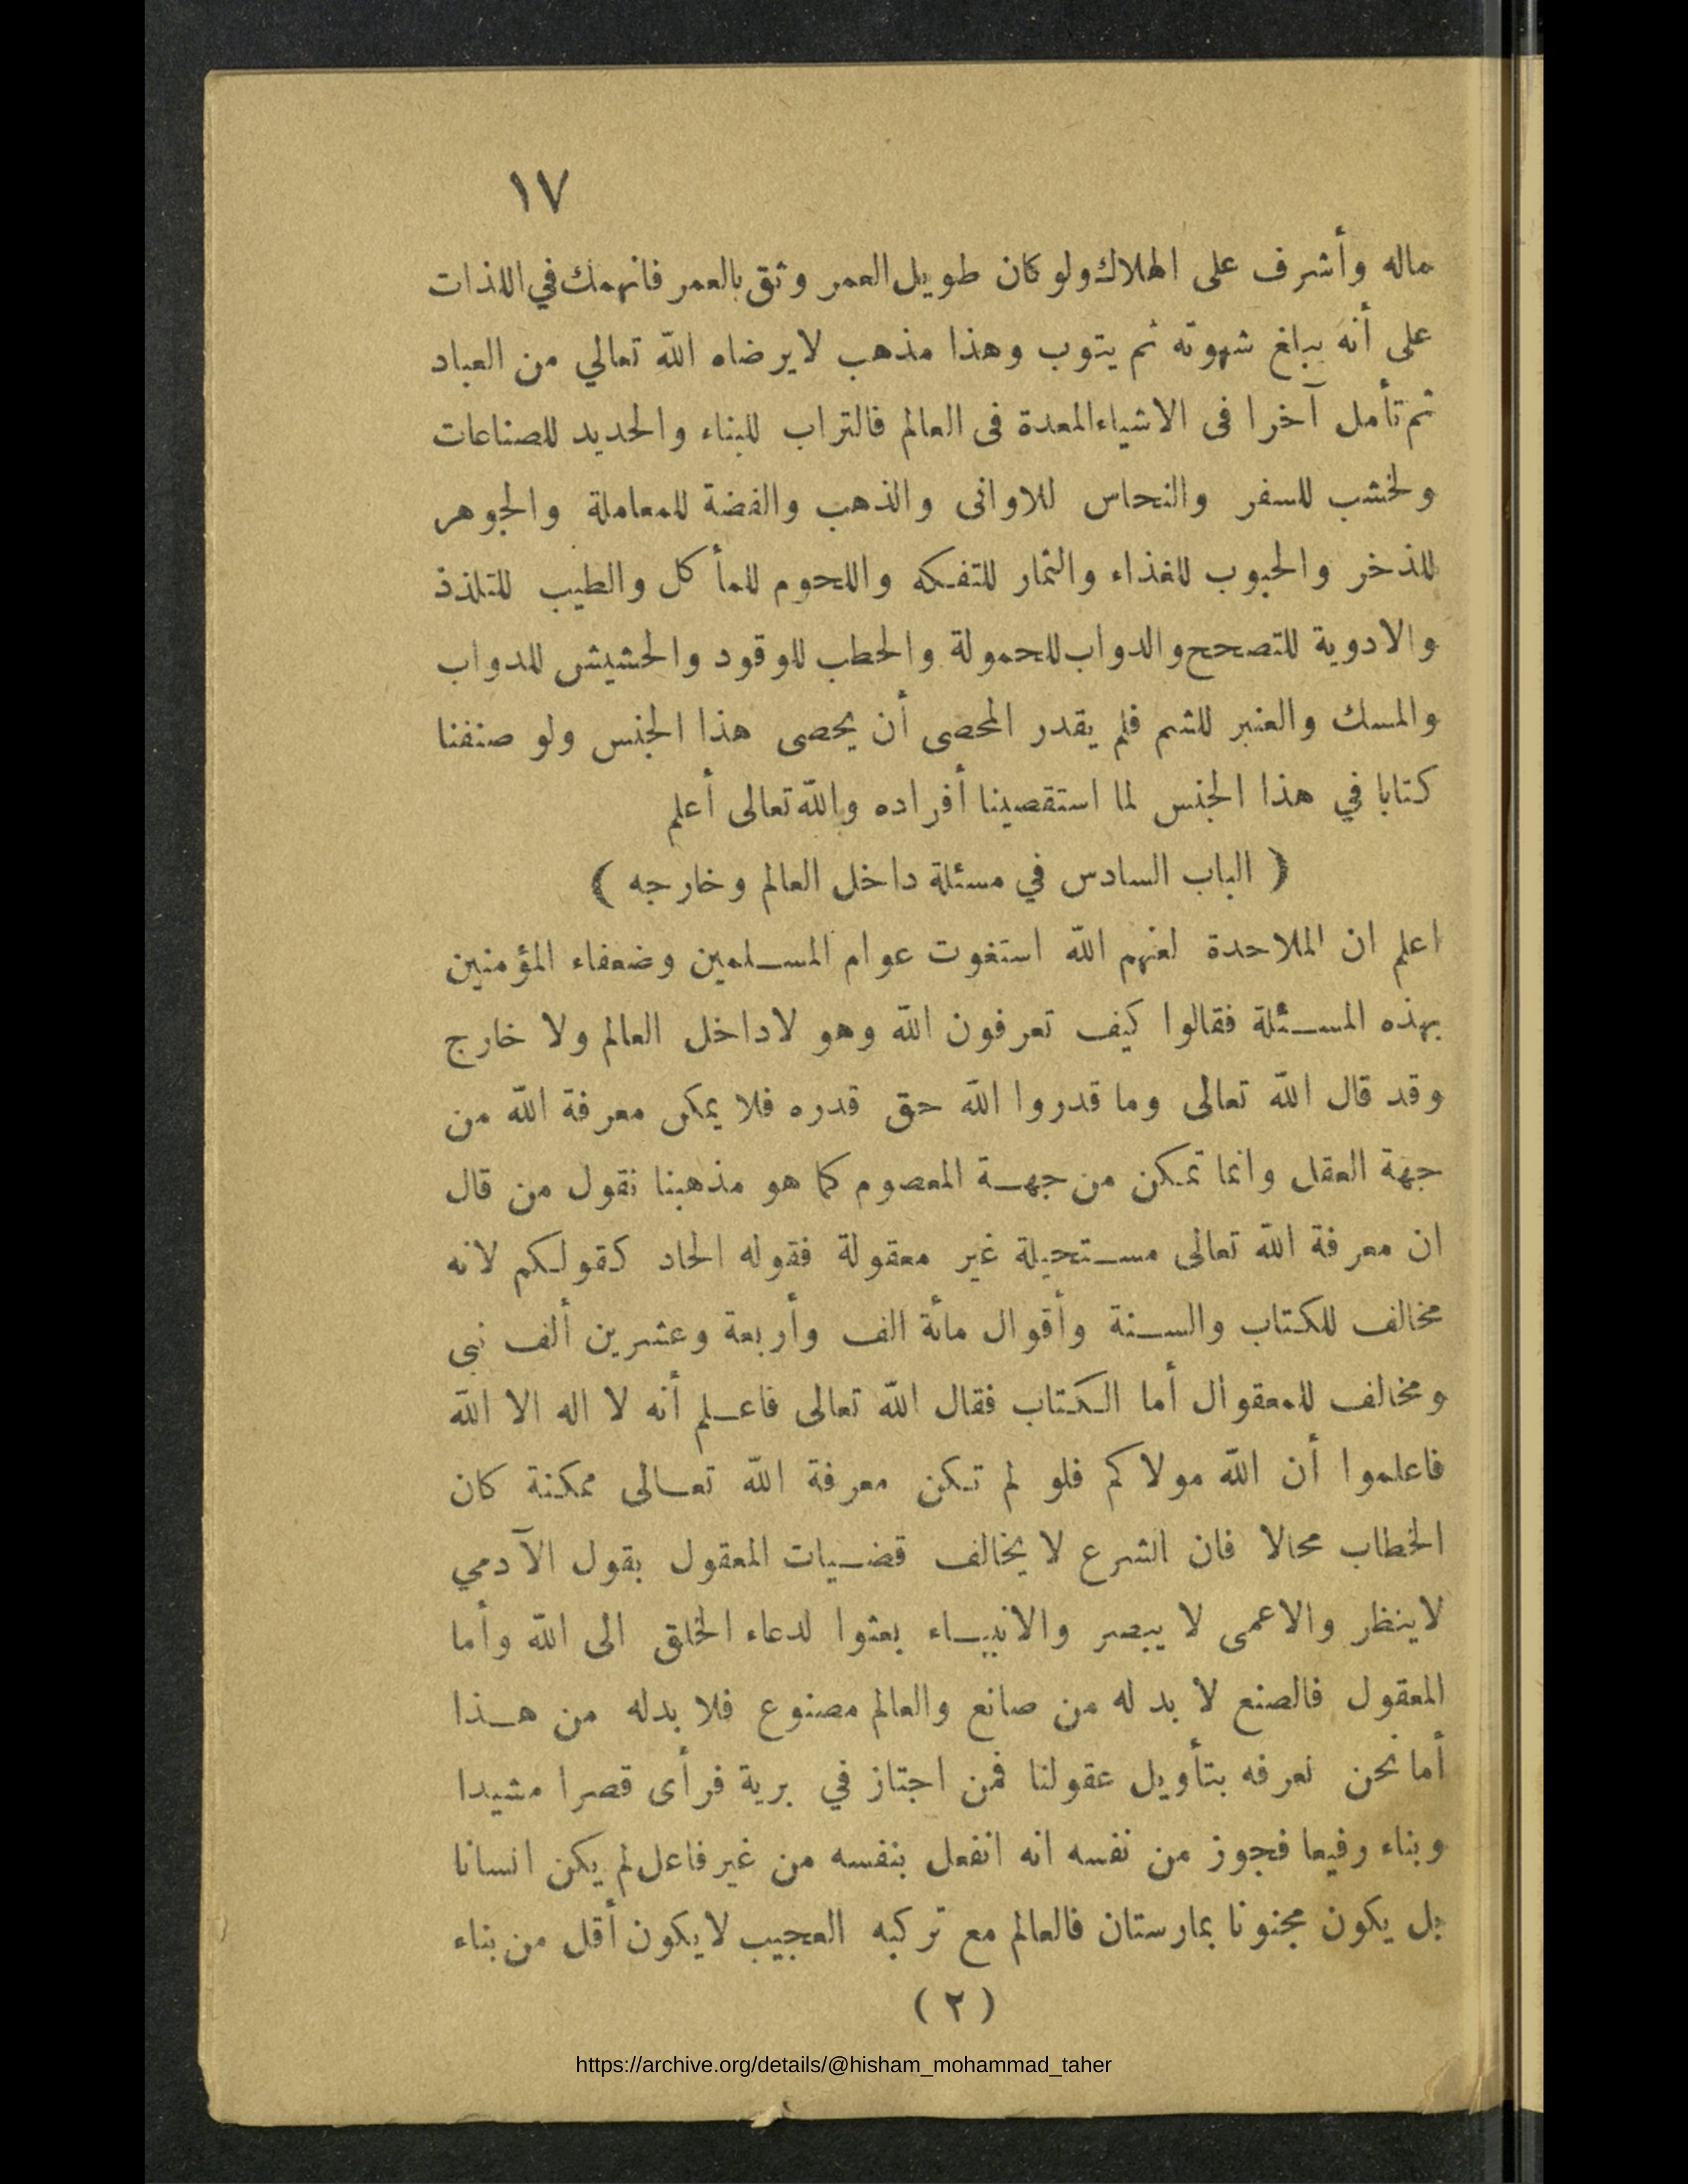 ١٧
ماله وأشرف على الهلاك ولو كان طويل العمر وثق بالعمر فانهمك في اللذات
على أنه يبلغ شهوته ثم يتوب وهذا مذهب لا يرضاه الله تعالي من العباد
ثم تأمل آخرا فى الاشياء المعدة فى العالم فالتراب للبناء والحديد للصناعات
ولخشب للسفر والنحاس للاوانى والذهب والفضة للمعاملة والجوهر
للذخر والحبوب للغذاء والثمار للتفكه واللحوم للمأكل والطيب للتلذذ
والادوية للتصحح والدواب للحمولة والحطب للوقود والحشيش للدواب
والمسك والعنبر للشم فلم يقدر المحصى أن يحصى هذا الجنس ولو صنفنا
كتابا في هذا الجنس لما استقصينا أفراده والله تعالى أعلم
( الباب السادس في مسئلة داخل العالم وخارجه )
اعلم ان الملاحدة لعنهم الله استغوت عوام المسلمين وضعفاء المؤمنين
بهذه المسئلة فقالوا كيف تعرفون الله وهو لا داخل العالم ولا خارج
وقد قال الله تعالى وما قدروا الله حق قدره فلا يمكن معرفة الله من
جهة العقل وانما تمكن من جهة المعصوم كما هو مذهبنا نقول من قال
ان معرفة الله تعالى مستحيلة غير معقولة فقوله الحاد كقولكم لانه
مخالف للكتاب والسنة وأقوال مائة الف وأربعة وعشرين ألف نبى
ومخالف للمعقوال أما الكتاب فقال الله تعالى فاعلم أنه لا اله الا الله
فاعلموا أن الله مولاكم فلو لم تكن معرفة الله تعالى ممكنة كان
الخطاب محالا فان الشرع لا يخالف قضيات المعقول بقول الآدمي
لا ينظر والاعمى لا يبصر والانبياء بعثوا لدعاء الخلق الى الله وأما
المعقول فالصنع لا بد له من صانع والعالم مصنوع فلا بدله من هذا
أما نحن نعرفه بتأويل عقولنا فمن اجتاز في برية فرأى قصرا مشيدا
وبناء رفيعا فجوز من نفسه انه انفعل بنفسه من غير فاعل لم يكن انسانا
بل يكون مجنونا بمارستان فالعالم مع تركبه العجيب لا يكون أقل من بناء
( ٢ )
https://archive.org/details/@hisham_mohammad_taher